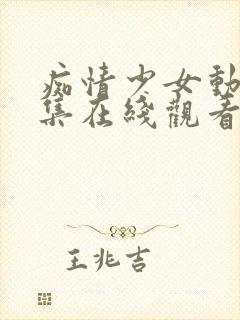 痴情少女動
集在綫觀看
王兆吉